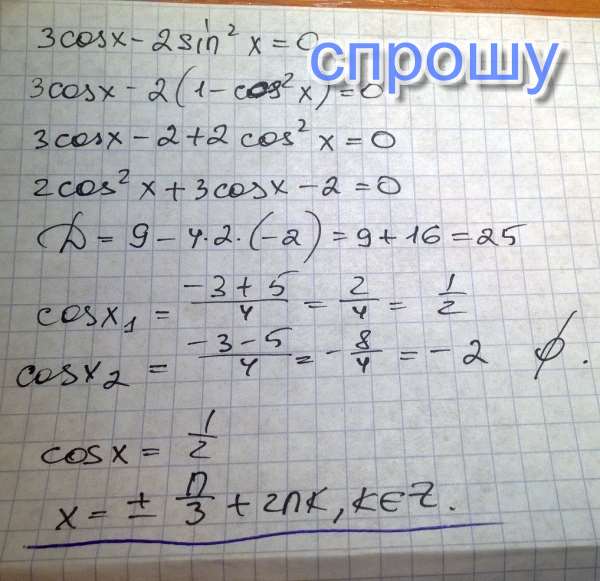 3cosx - 2sin² x = 0
спрошу
3cosx - 2(1 - cos² x) = 0
3cosx - 2 + 2cos² x = 0
2cos² x + 3cosx - 2 = 0
D = 9 - 4·2·(-2) = 9 + 16 = 25
cosx₁ = (-3+5)/4 = 2/4 = 1/2
cosx₂ = (-3-5)/4 = -8/4 = -2 ∅.
cosx = 1/2
x = ± π/3 + 2πk, k∈Z.